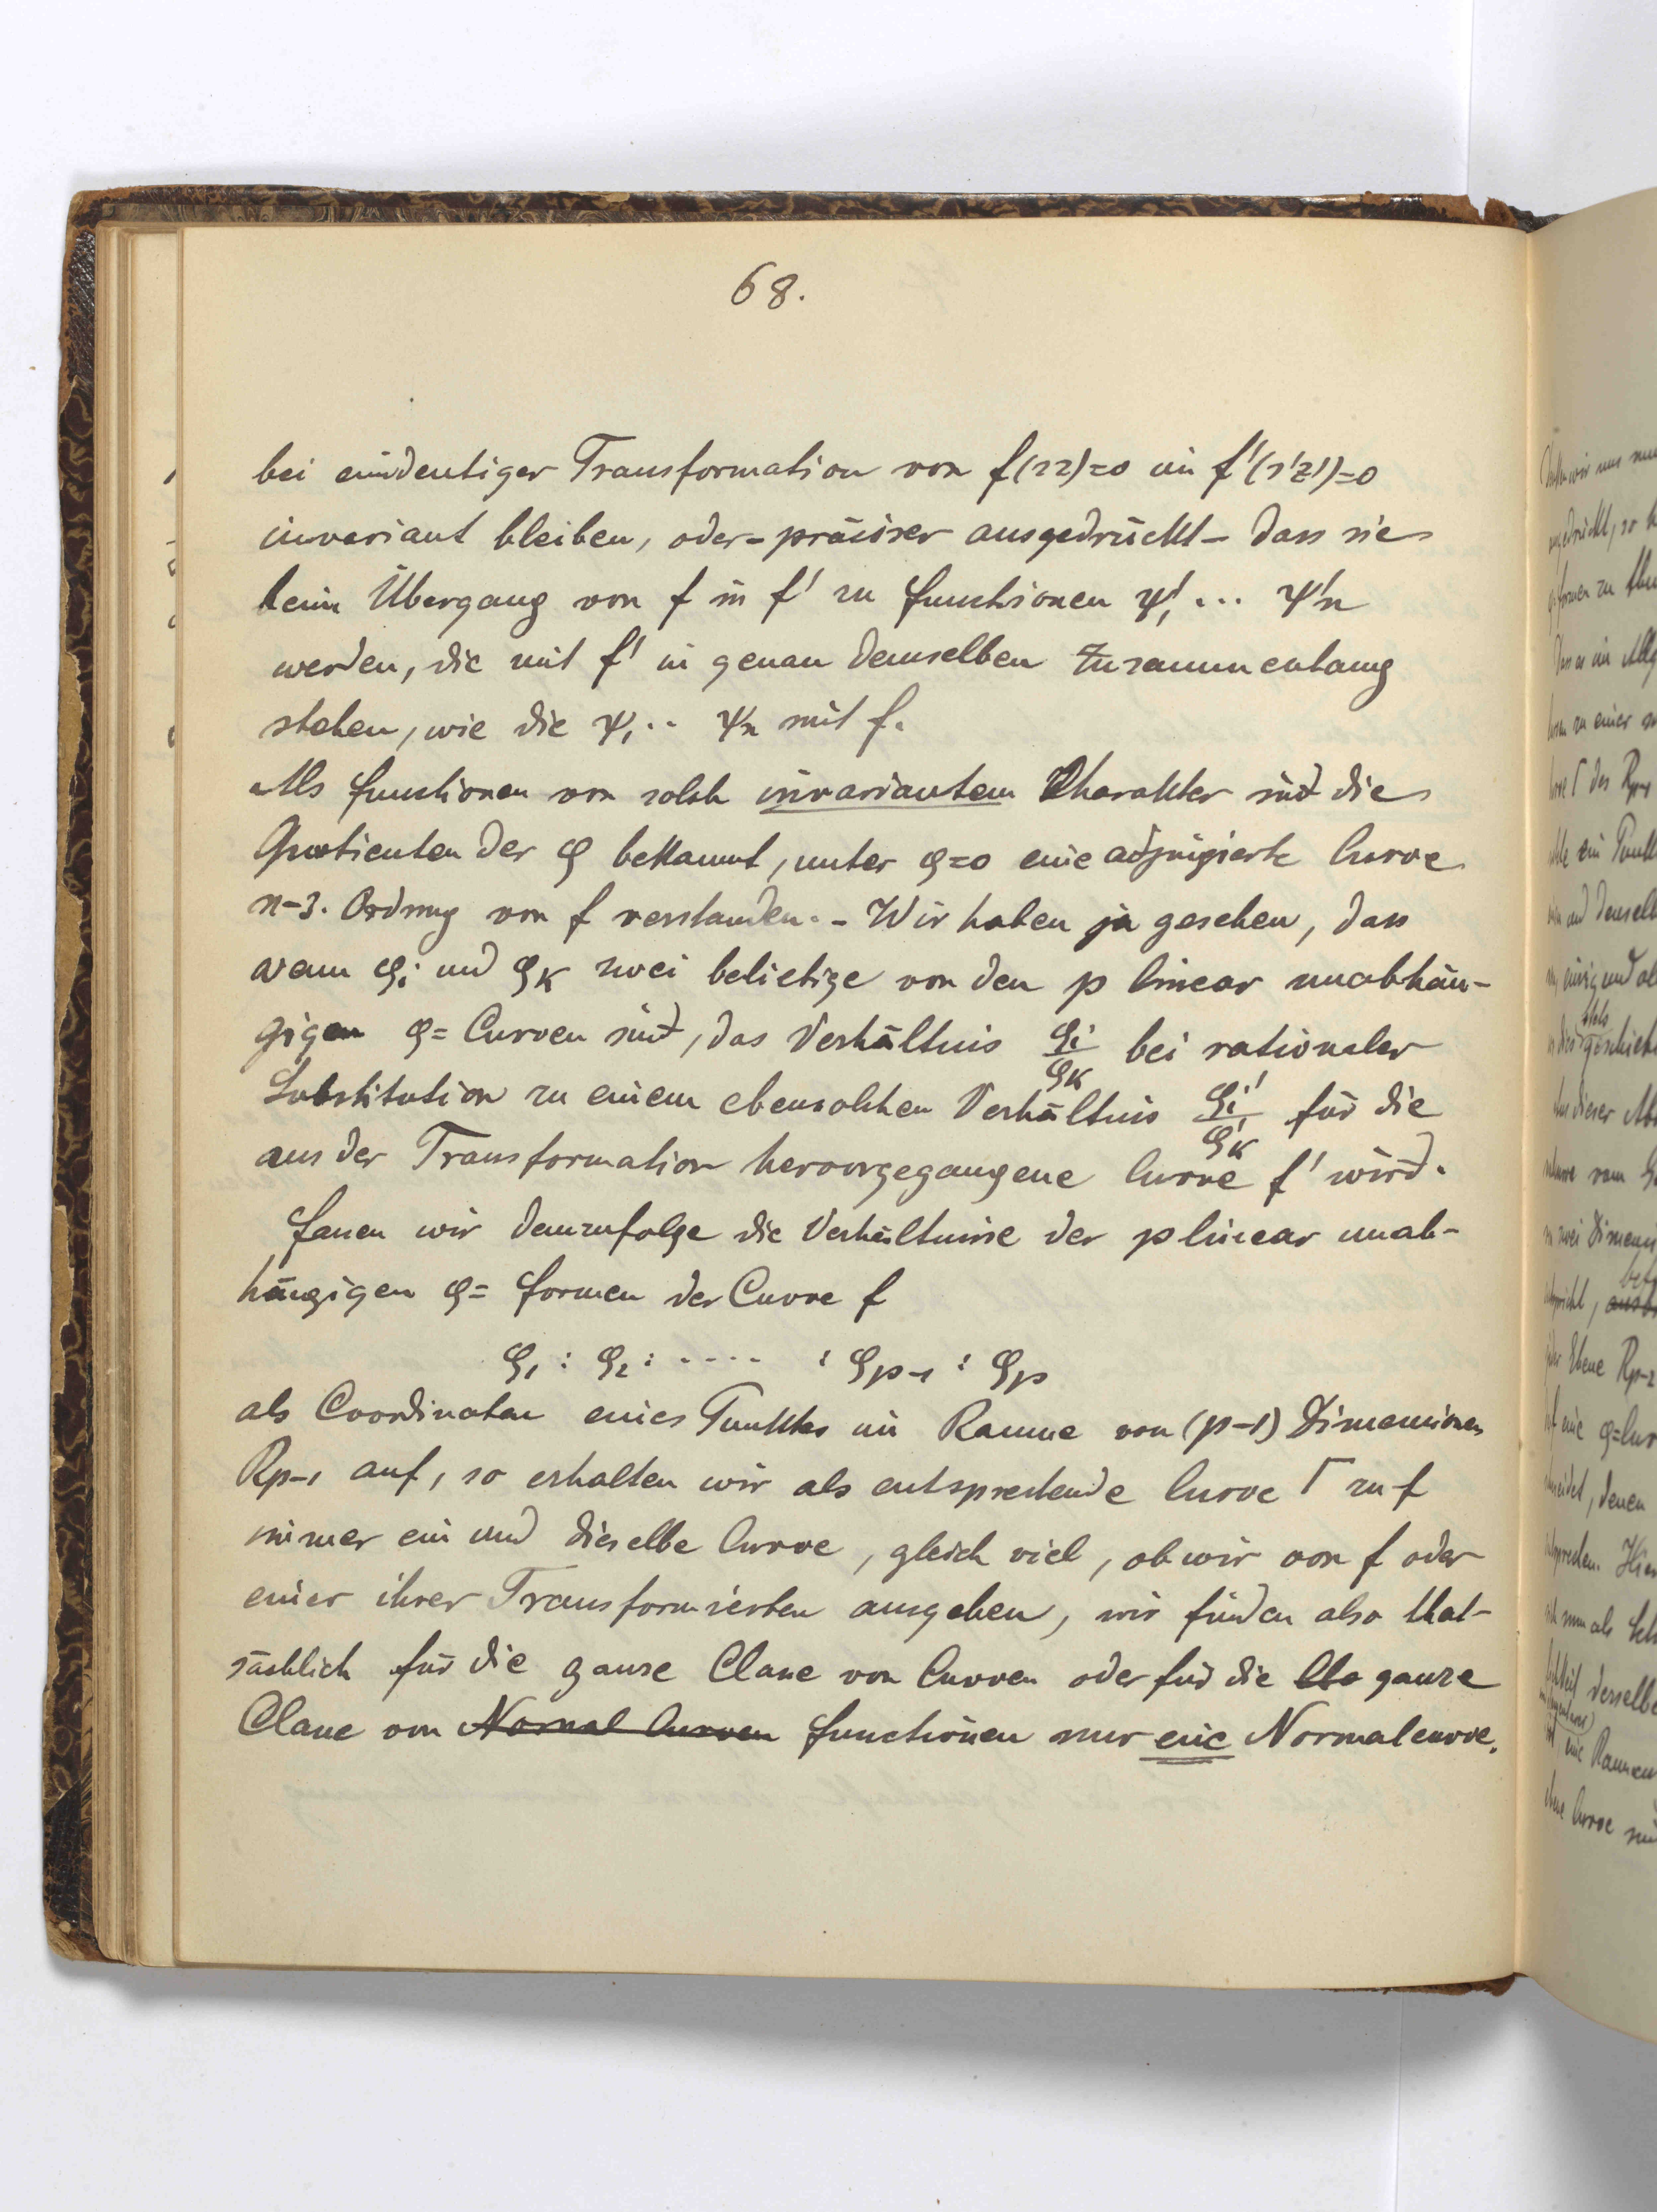 68.
bei eindeutiger Transformation von f(sz)=0 in f'(s'z')=0
invariant bleiben, oder - präciser ausgedrückt - dass sie
beim Übergang von f in f' zu Functionen ψ'₁ ... ψ'n
werden, die mit f' in genau demselben Zusammenhang
stehen, wie die ψ₁ .. ψn mit f.
Als Functionen von solch invariantem Charakter sind die
Quotienten der φ bekannt, unter φ=0 eine adjungierte Curve
n-3. Ordnung von f verstanden. - Wir haben ja gesehen, dass
wenn φi und φK zwei beliebige von den p linear unabhän-
gigen φ= Curven sind, das Verhältnis φi/φK bei rationaler
Substitution zu einem ebensolchen Verhältnis φi'/φ'K für die
aus der Transformation hervorgegangene Curve f' wird.
Fassen wir demzufolge die Verhältnisse der p linear unab-
hängigen φ= Formen der Curve f
φ₁ : φ₂ : ---- : φp-1 : φp
als Coordinaten eines Punktes im Raume von (p-1) Dimensionen
Rp-1 auf, so erhalten wir als entsprechende Curve Γ zu f
immer ein und dieselbe Curve, gleich viel, ob wir von f oder
einer ihrer Transformierten ausgehen, wir finden also that-
sächlich für die ganze Classe von Curven oder für die ganze
Classe von Normal Curven Functionen nur eine Normalcurve.